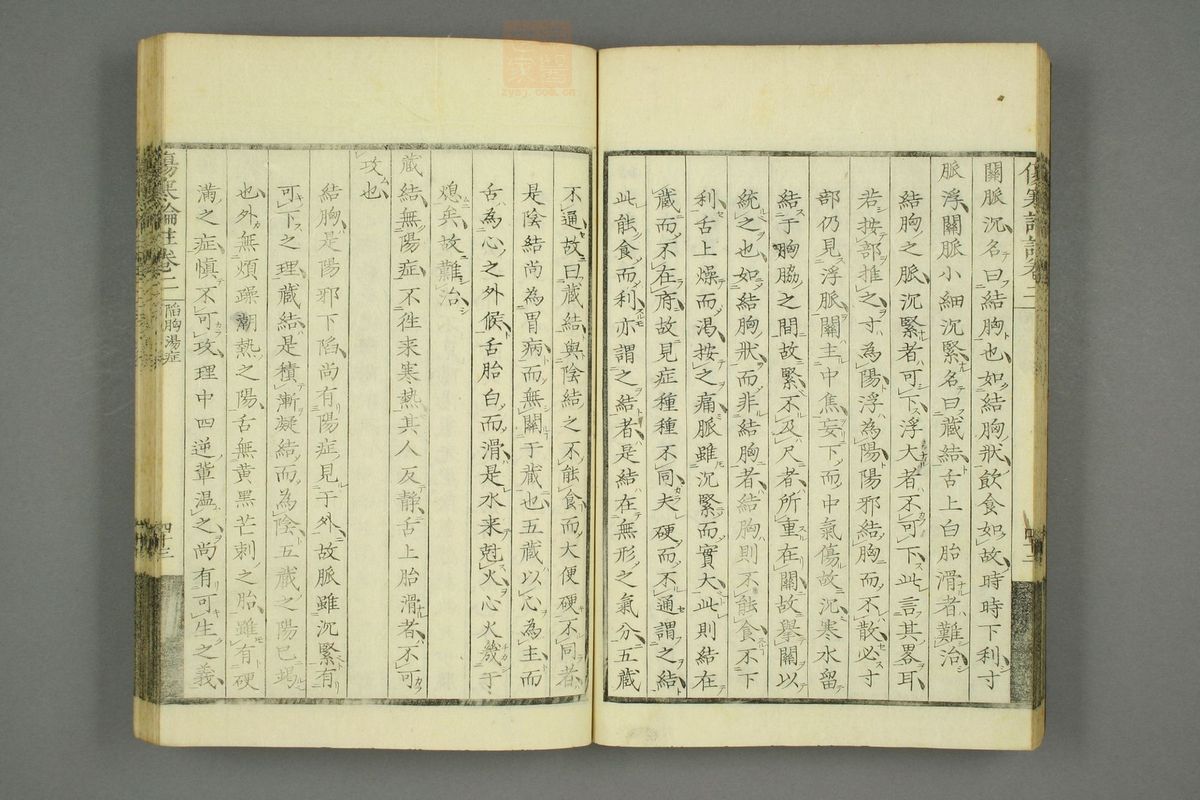 傷寒論註卷二
關脈沉名曰結胸也如結胸狀飲食如故時時下利寸
脈浮關脈小細沉緊名曰藏結舌上白胎滑者難治
結胸之脈沉緊者可下浮大者不可下此言其畧耳
若按部推之寸為陽浮為陽陽邪結胸而不散必寸
部仍見浮脈關主中焦妄下而中氣傷故沉寒水留
結于胸脇之間故緊不及尺者所重在關故舉關以
統之也如結胸狀而非結胸者結胸則不能食不下
利舌上燥而渴按之痛脈雖沉緊而實大此則結在
藏而不在府故見症種種不同夫硬而不通謂之結
此能食而利亦謂之結者是結在無形之氣分五藏
不通故曰藏結與陰結之不能食而大便硬不同者
是陰結尚為胃病而無關于藏也五藏以心為主而
舌為心之外候舌胎白而滑是水来尅火心火幾于
熄矣故難治
藏結無陽症不徃来寒熱其人反靜舌上胎滑者不可
攻也
結胸是陽邪下陷尚有陽症見于外故脈雖沉緊有
可下之理藏結是積漸凝結而為陰五藏之陽已竭
也外無煩躁潮熱之陽舌無黄黑芒刺之胎雖有硬
滿之症慎不可攻理中四逆輩温之尚有可生之義
傷寒論註卷二 陷胸湯症 四十三